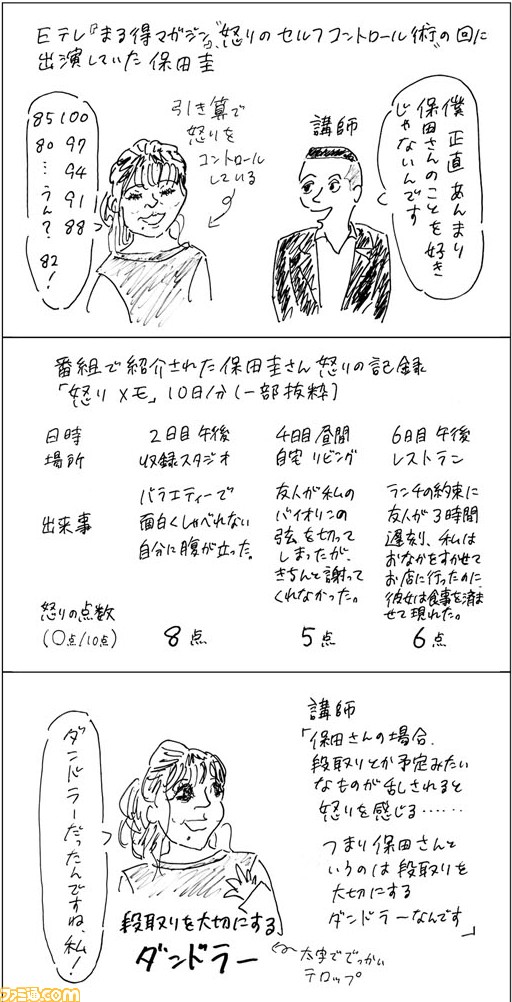 Eテレ『まる得マガジン』、"怒りのセルフコントロール術"の回に
出演していた保田圭
僕 正直 あんまり
保田さんのことを好き
じゃないんです
講師
引き算で
怒りを
コントロール
している
100
97
94
91
88
85
80
…
うん?
82!
番組で紹介された保田圭さん怒りの記録
「怒りメモ」10日分(一部抜粋)
日時
場所
2日目 午後
収録スタジオ
4日目 昼間
自宅 リビング
6日目 午後
レストラン
出来事
バラエティーで
面白くしゃべれない
自分に腹が立った。
友人が私の
バイオリンの
弦を切って
しまったが、
きちんと謝って
くれなかった。
ランチの約束に
友人が3時間
遅刻、私は
おなかをすかせて
お店に行ったのに、
彼女は食事を済ま
せて現れた。
怒りの点数
(〇点/10点)
8点
5点
6点
講師
「保田さんの場合、
段取りとか予定みたい
なものが乱されると
怒りを感じる……
つまり保田さんと
いうのは段取りを
大切にする
ダンドラーなんです」
ダンドラーだったんですね、私!
段取りを大切にする
ダンドラー
太字ででっかい
テロップ
ファミ通.com